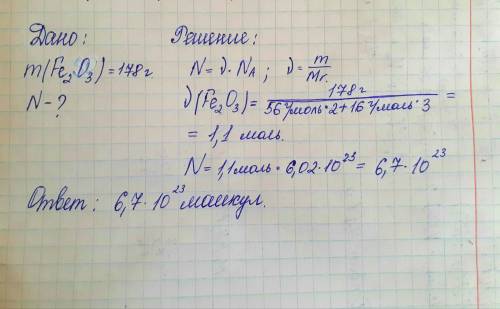 Дано:
Решение:
m(Fe₂O₃)=178г
N-?
N=ν·Nₐ; ν=m/Mr.
ν(Fe₂O₃)=178г/56г/моль·2+16г/моль·3=
=1,1 моль.
N=1,1моль·6,02·10²³=6,7·10²³
Ответ: 6,7·10²³ молекул.